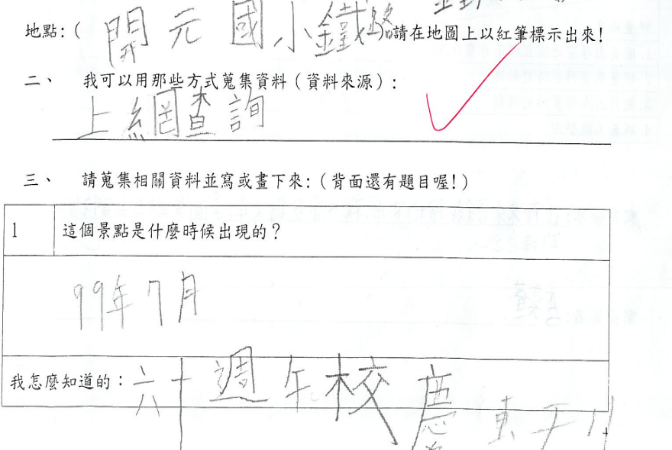 地點:(開元國小鐵路)請在地圖上以紅筆標示出來!
二、 我可以用那些方式蒐集資料(資料來源):
上網查詢
三、 請蒐集相關資料並寫或畫下來:(背面還有題目喔!)
1 這個景點是什麼時候出現的?
99年7月
我怎麼知道的:六十週年校慶